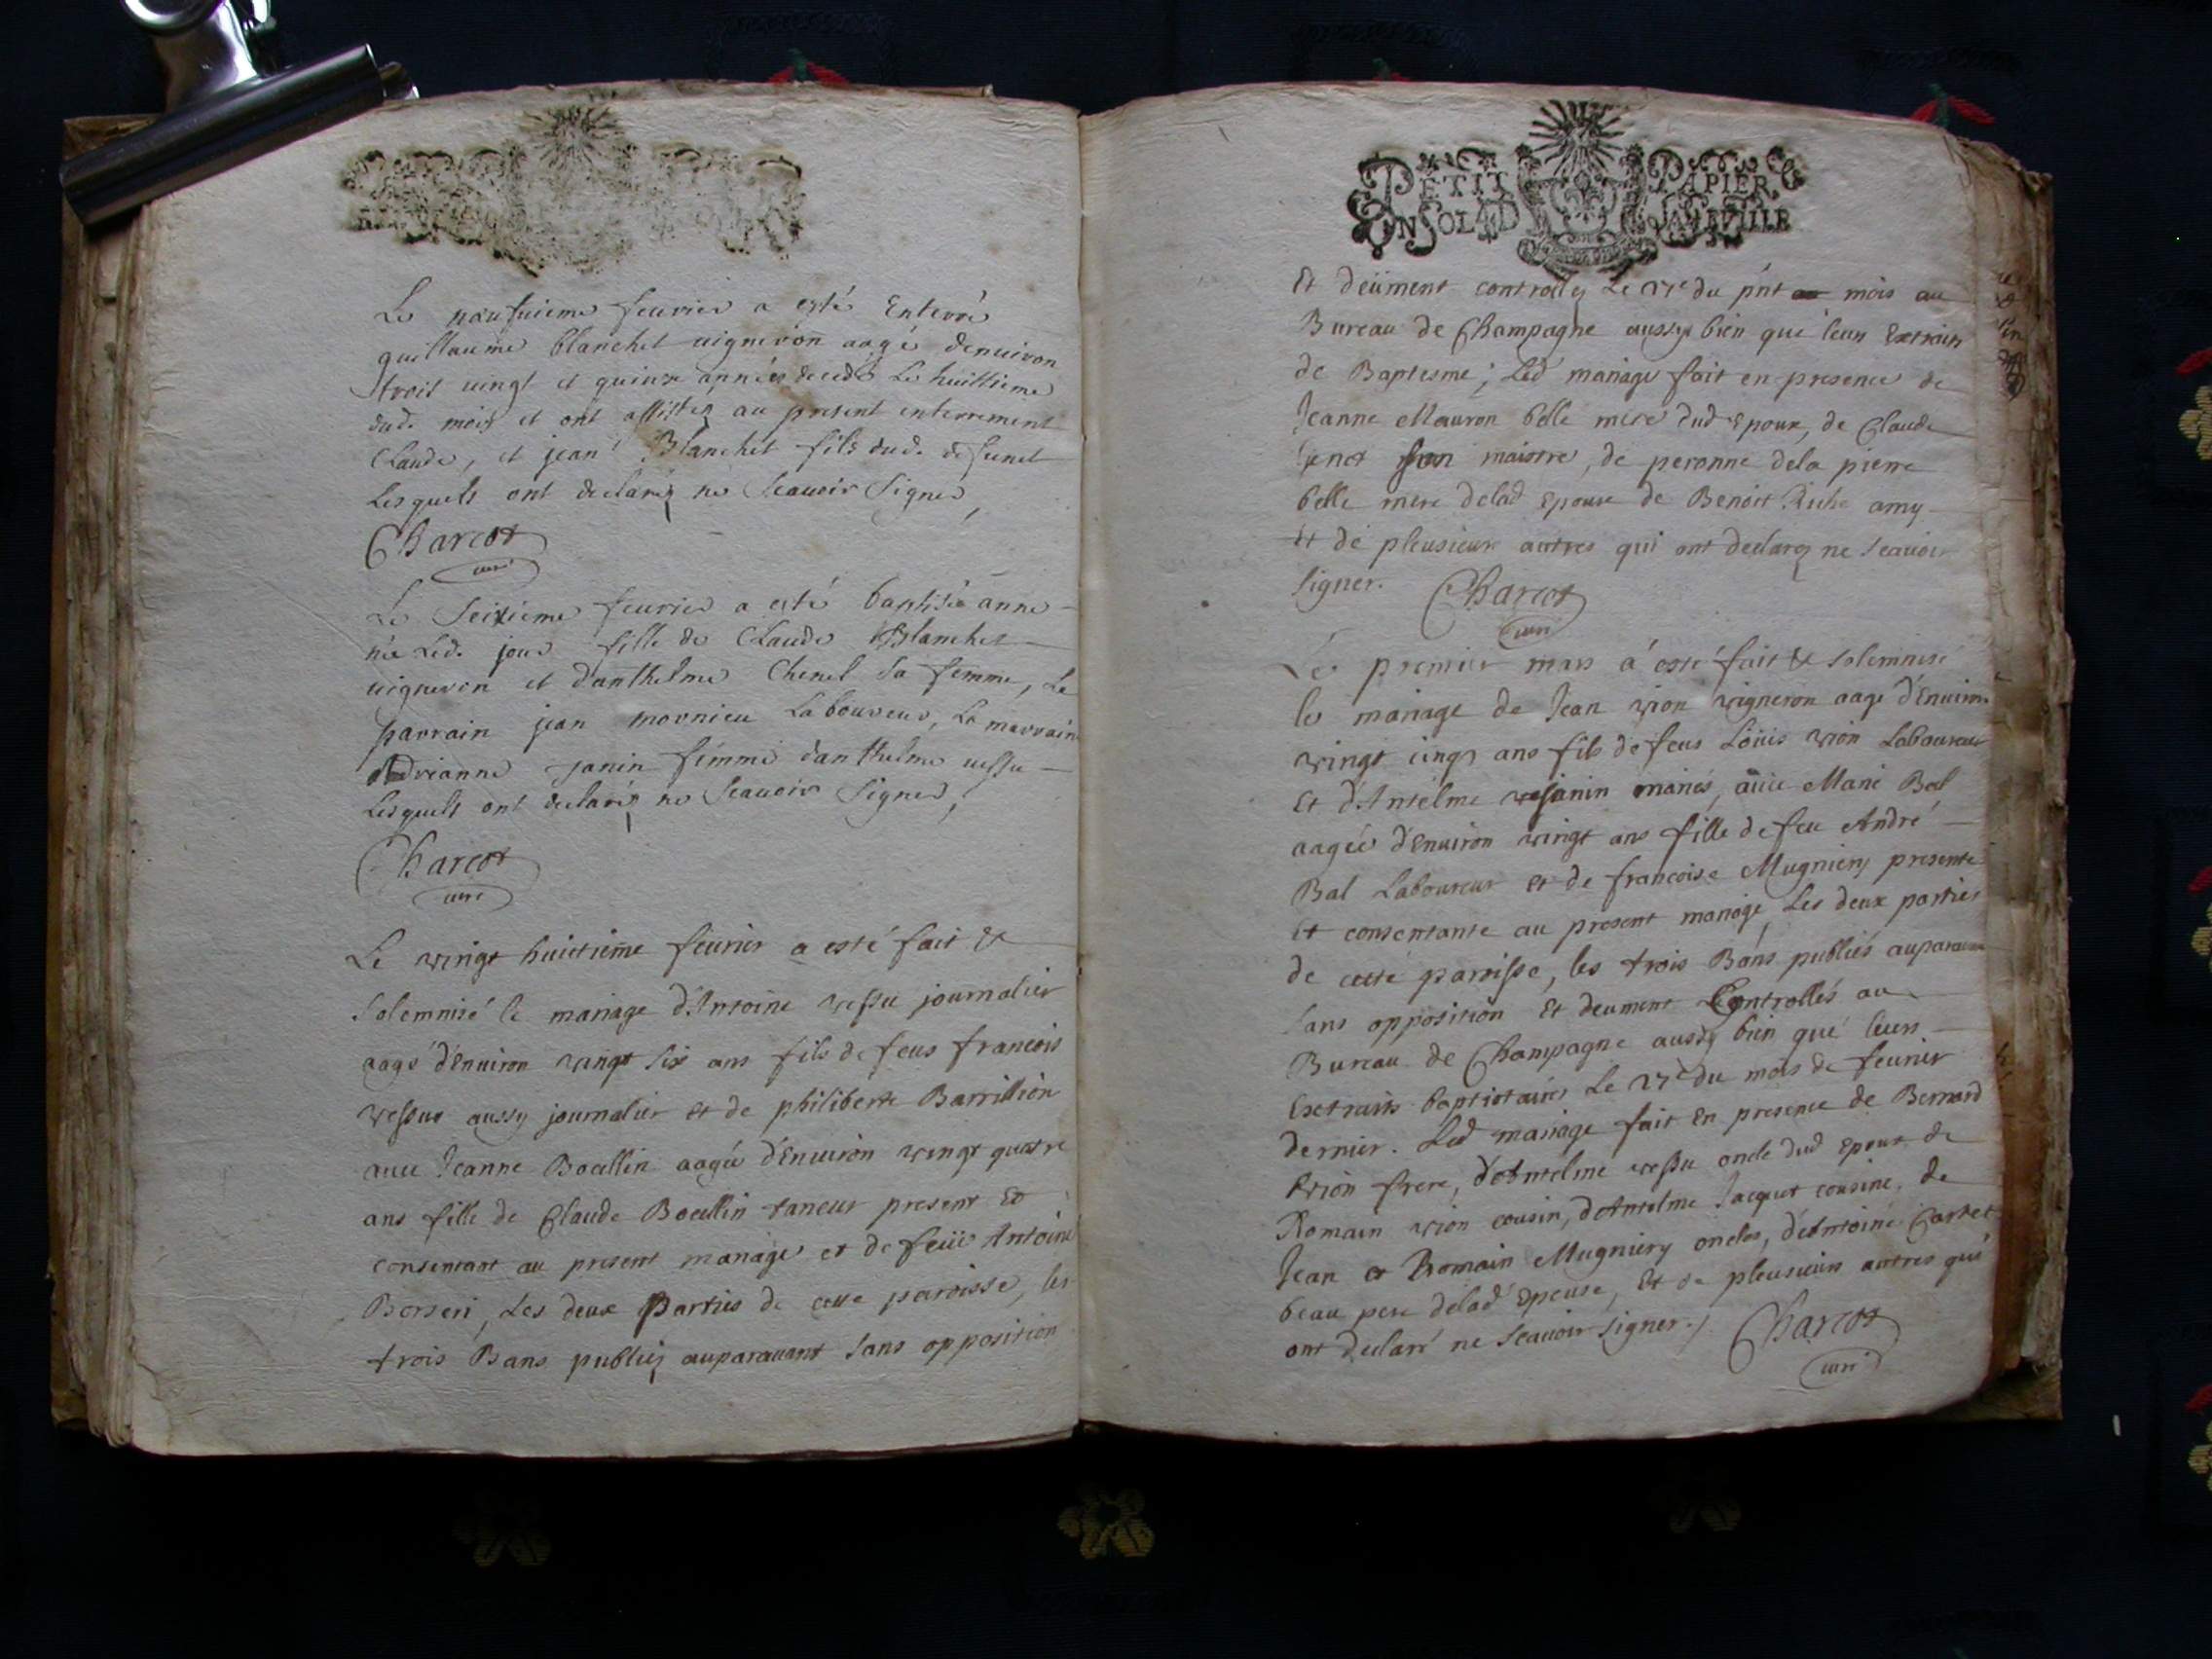 Le neufuieme feurier a esté Enterré
guillaume blanchet uigneron aagé denuiron
trois uingt et quinze années decedé Le huittieme
dud. mois et ont assistéz au present enterrement
Claude, et jean Blanchet fils dud. defunct
Lesquels ont declaréz ne Scauoir Signer,
Charcot
curé
Le Seizieme feurier a esté baptisée anne
née Led. jour fille de Claude Blanchet
uigneron et d'anthelme Chenel Sa femme, Le
parrain jean mornieu Laboureur, La marraine
Adrianne janin femme danthelme uessu
Lesquels ont declaréz ne Scauoir Signer,
Charcot
curé
Le vingt huictieme feurier a esté fait Et
Solemnisé le mariage d'Antoine vessu journalier
aagé d'Enuiron vingt six ans fils de feus francois
vessus aussy journalier et de philiberte Barrillion
auec Jeanne Bocllin aagée d'Enuiron vingt quatre
ans fille de Claude Bocllin taneur present Et
consentant au present mariage et de feüe Antoine
Berseri, Les deux Parties de cette paroisse, les
trois Bans publiez auparauant Sans opposition
PETIT PAPIER
UN SOL 4 D LA FEVILLE
Et deüment controllez Le 27e du pnt mois au
Bureau de Champagne aussy bien que leurs Extraits
de Baptesme; Led mariage fait en presence de
Jeanne Mauron belle mere dud Epoux, de Claude
Genet Son maistre, de peronne dela pierre
belle mere delad Epouse de Benoit Riche amy
Et de pleusieurs autres qui ont declarez ne Scauoir
Signer. Charcot
curé
Le premier mars a esté fait Et Solemnisé
le mariage de Jean vion vigneron aagé d'Enuiron
vingt cinq ans fils de feus Loüis vion Laboureur
Et d'Antelme janin mariés, auec Marie Bal
aagée d'Enuiron vingt ans fille de feu André
Bal Laboureur et de francoise Mugniery presente
Et consentante au present mariage, Les deux parties
de cette parrisse, les trois Bans publiés auparauant
Sans opposition Et deument Controllés au
Bureau de Champagne aussy bien que leurs
Extraits baptistaires Le 27e du mois de feurier
dernier. Led mariage fait En presence de Bernard
vion frere, d'Antelme vessu oncle dud Epoux de
Romain vion cousin, d'Antelme Jacquet cousine, de
Jean et Romain Mugniery oncles, d'Antoine Cartet
beau pere delad Epouse, Et de pleusieurs autres qui
ont declaré ne Scauoir Signer. Charcot
curé